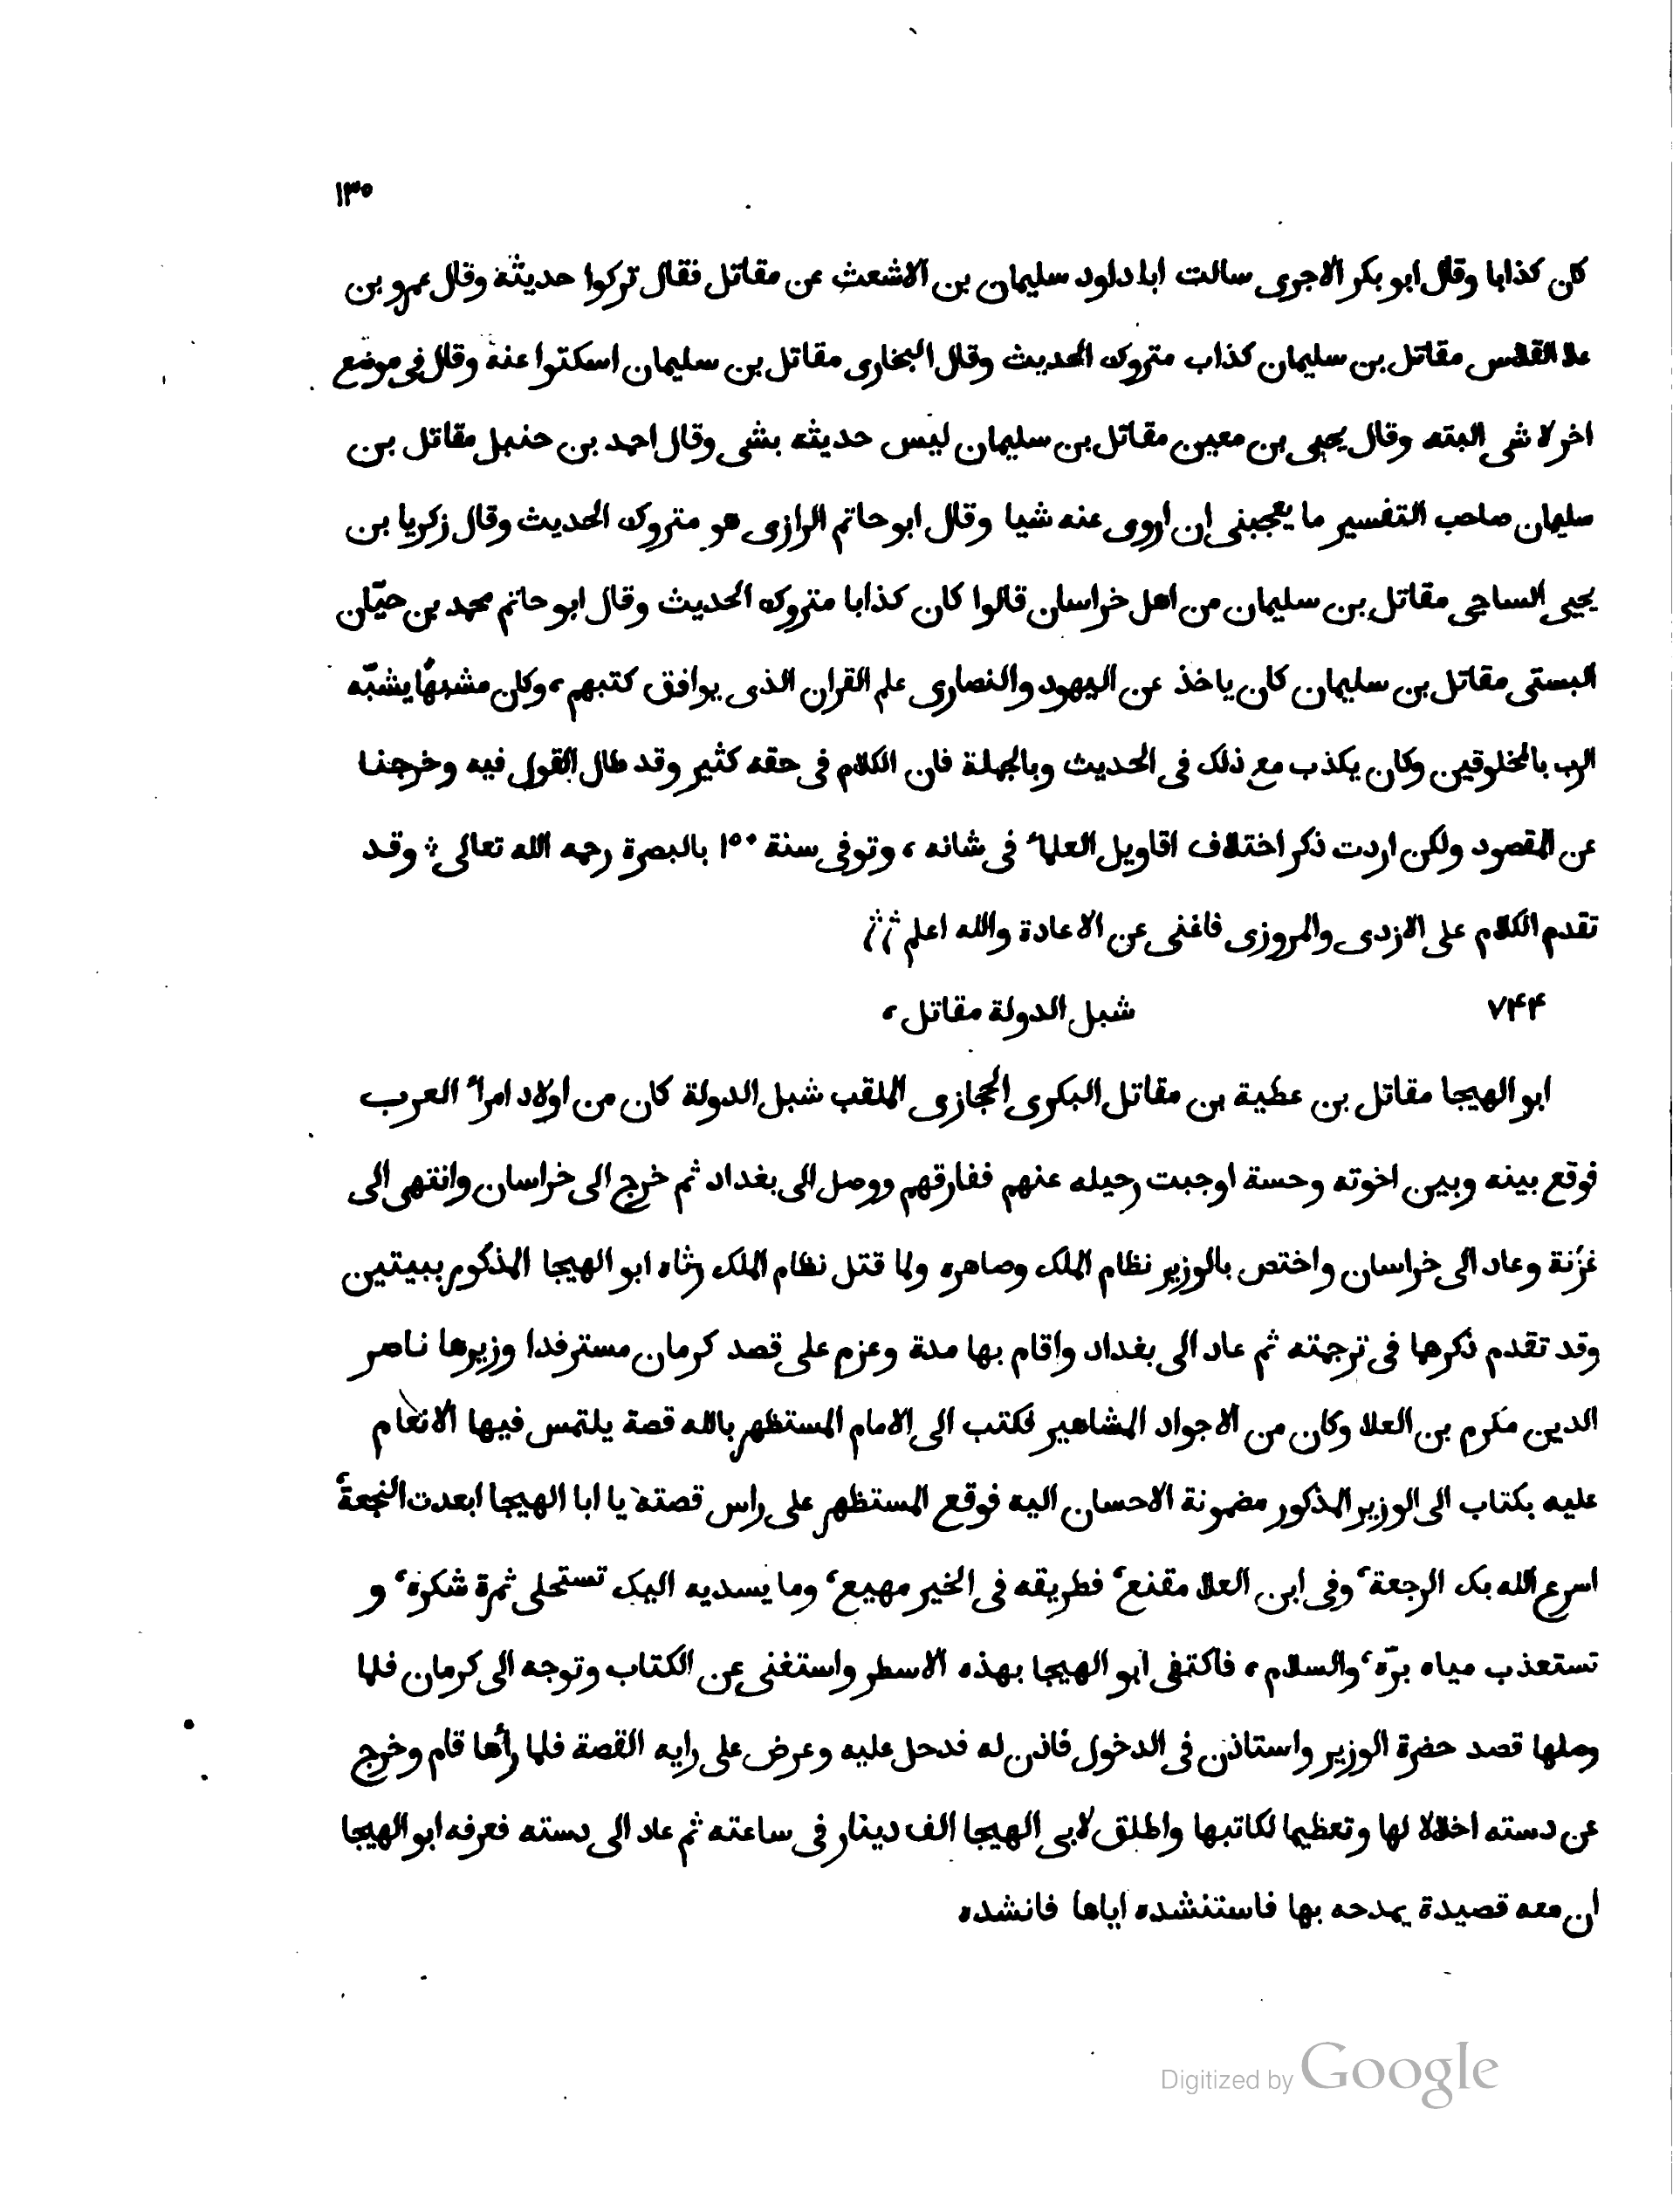 ١٣٥
كان كذابا وقال ابو بكر الاجرى سالت ابا داود سليمان بن الاشعث عن مقاتل فقال تركوا حديثه وقال عمرو بن
علا الفلاس مقاتل بن سليمان كذاب متروك الحديث وقال البخارى مقاتل بن سليمان اسكتوا عنه وقال فى موضع
اخر لا شى البته وقال يحيى بن معين مقاتل بن سليمان ليس حديثه بشى وقال احمد بن حنبل مقاتل بن
سليمان صاحب التفسير ما يعجبنى ان اروى عنه شيا وقال ابو حاتم الرازى هو متروك الحديث وقال زكريا بن
يحيى الساجى مقاتل بن سليمان من اهل خراسان قالوا كان كذابا متروك الحديث وقال ابو حاتم محمد بن حيّان
البستى مقاتل بن سليمان كان ياخذ عن اليهود والنصارى علم القران الذى يوافق كتبهم، وكان مشبهًا يشبّه
الرب بالمخلوقين وكان يكذب مع ذلك فى الحديث وبالجملة فان الكلام فى حقه كثير وقد طال القول فيه وخرجنا
عن المقصود ولكن اردت ذكر اختلاف اقاويل العلماء فى شانه، وتوفى سنة ١٥٠ بالبصرة رحمه الله تعالى ؞ وقد
تقدم الكلام على الازدى والمروزى فاغنى عن الاعادة والله اعلم ؞؞
٧٤٤ شبل الدولة مقاتل،
ابو الهيجا مقاتل بن عطية بن مقاتل البكرى الحجازى الملقب شبل الدولة كان من اولاد امراء العرب
فوقع بينه وبين اخوته وحسة اوجبت رحيله عنهم ففارقهم ووصل الى بغداد ثم خرج الى خراسان وانتهى الى
غزنة وعاد الى خراسان واختص بالوزير نظام الملك وصاهره ولما قتل نظام الملك رثاه ابو الهيجا المذكور ببيتين
وقد تقدم ذكرهما فى ترجمته ثم عاد الى بغداد واقام بها مدة وعزم على قصد كرمان مسترفدا وزيرها ناصر
الدين مكرم بن العلا وكان من الاجواد المشاهير فكتب الى الامام المستظهر بالله قصة يلتمس فيها الانعام
عليه بكتاب الى الوزير المذكور مضمونة الاحسان اليه فوقع المستظهر على راس قصته يا ابا الهيجا ابعدت النجعةَ
اسرع الله بك الرجعة، وفى ابن العلا مقنع، فطريقه فى الخير مهيع، وما يسديه اليك تستحلى ثمرة شكره، و
تستعذب مياه برّه، والسلام، فاكتفى ابو الهيجا بهذه الاسطر واستغنى عن الكتاب وتوجه الى كرمان فلما
وصلها قصد حضرة الوزير واستاذن فى الدخول فاذن له فدحل عليه وعرض على رايه القصة فلما رأها قام وخرج
عن دسته اخلالا لها وتعظيما لكاتبها واطلق لابى الهيجا الف دينار فى ساعته ثم عاد الى دسته فعرفه ابو الهيجا
ان معه قصيدة يمدحه بها فاستنشده اياها فانشده
Digitized by Google